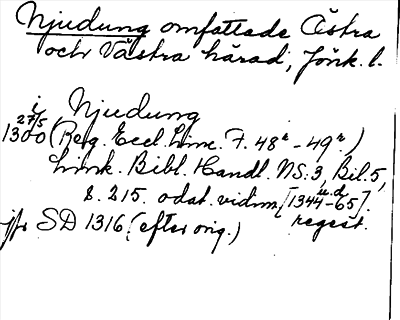 Njudung omfattade Östra
och Västra härad, Jönk. l.
i Njudung
27/5
1300 (Reg. Eccl. Linc. F. 48ᵃ - 49ᵃ.)
Link. Bibl. Handl. NS: 3, Bil. 5,
s. 215. odat. vidim. [1344-65]. u.d.
jfr SD 1316 (efter orig.) regest.